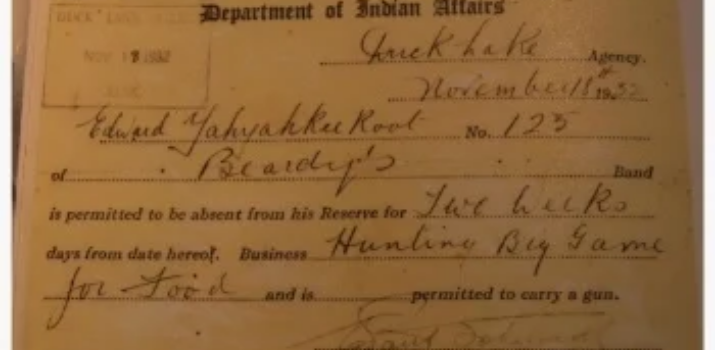 Department of Indian Affairs
DUCK LAKE
NOV 18 1932
Duck Lake Agency.
November 18th 1932
Edward Yahyahkeekoot No. 125
of Beardy's Band
is permitted to be absent from his Reserve for Two Weeks
days from date hereof. Business Hunting Big Game
for Food and is permitted to carry a gun.